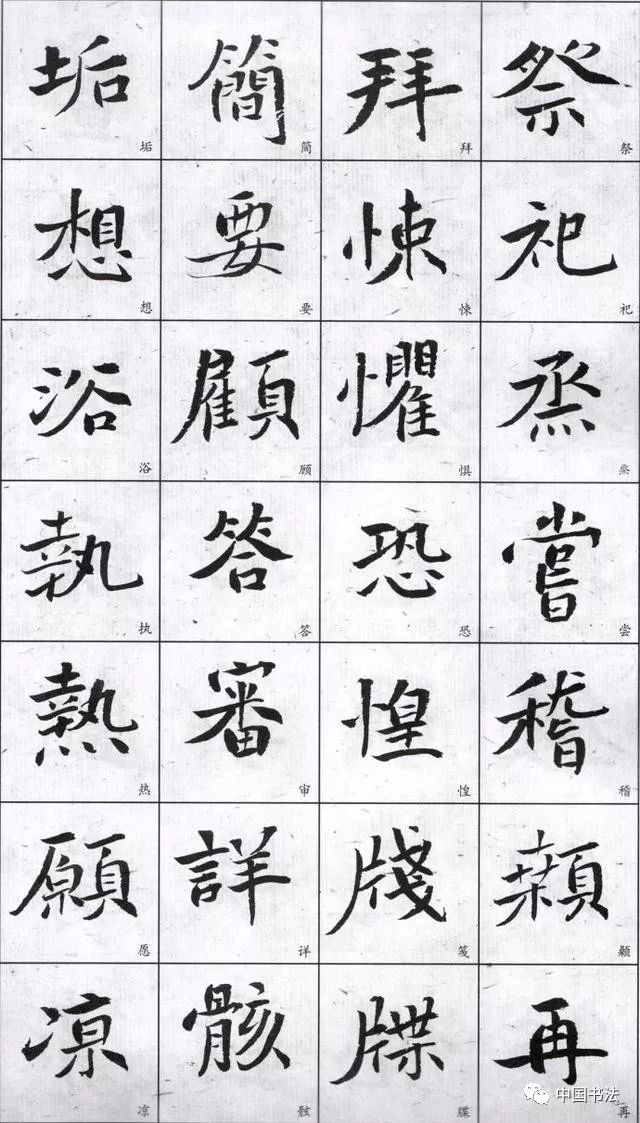 祭祀烝嘗稽顙再
拜悚懼恐惶牋牒
簡要顧答審詳骸
垢想浴執熱願凉
祭祀烝尝稽颡再
拜悚惧恐惶笺牒
简要顾答审详骸
垢想浴执热愿凉
中国书法